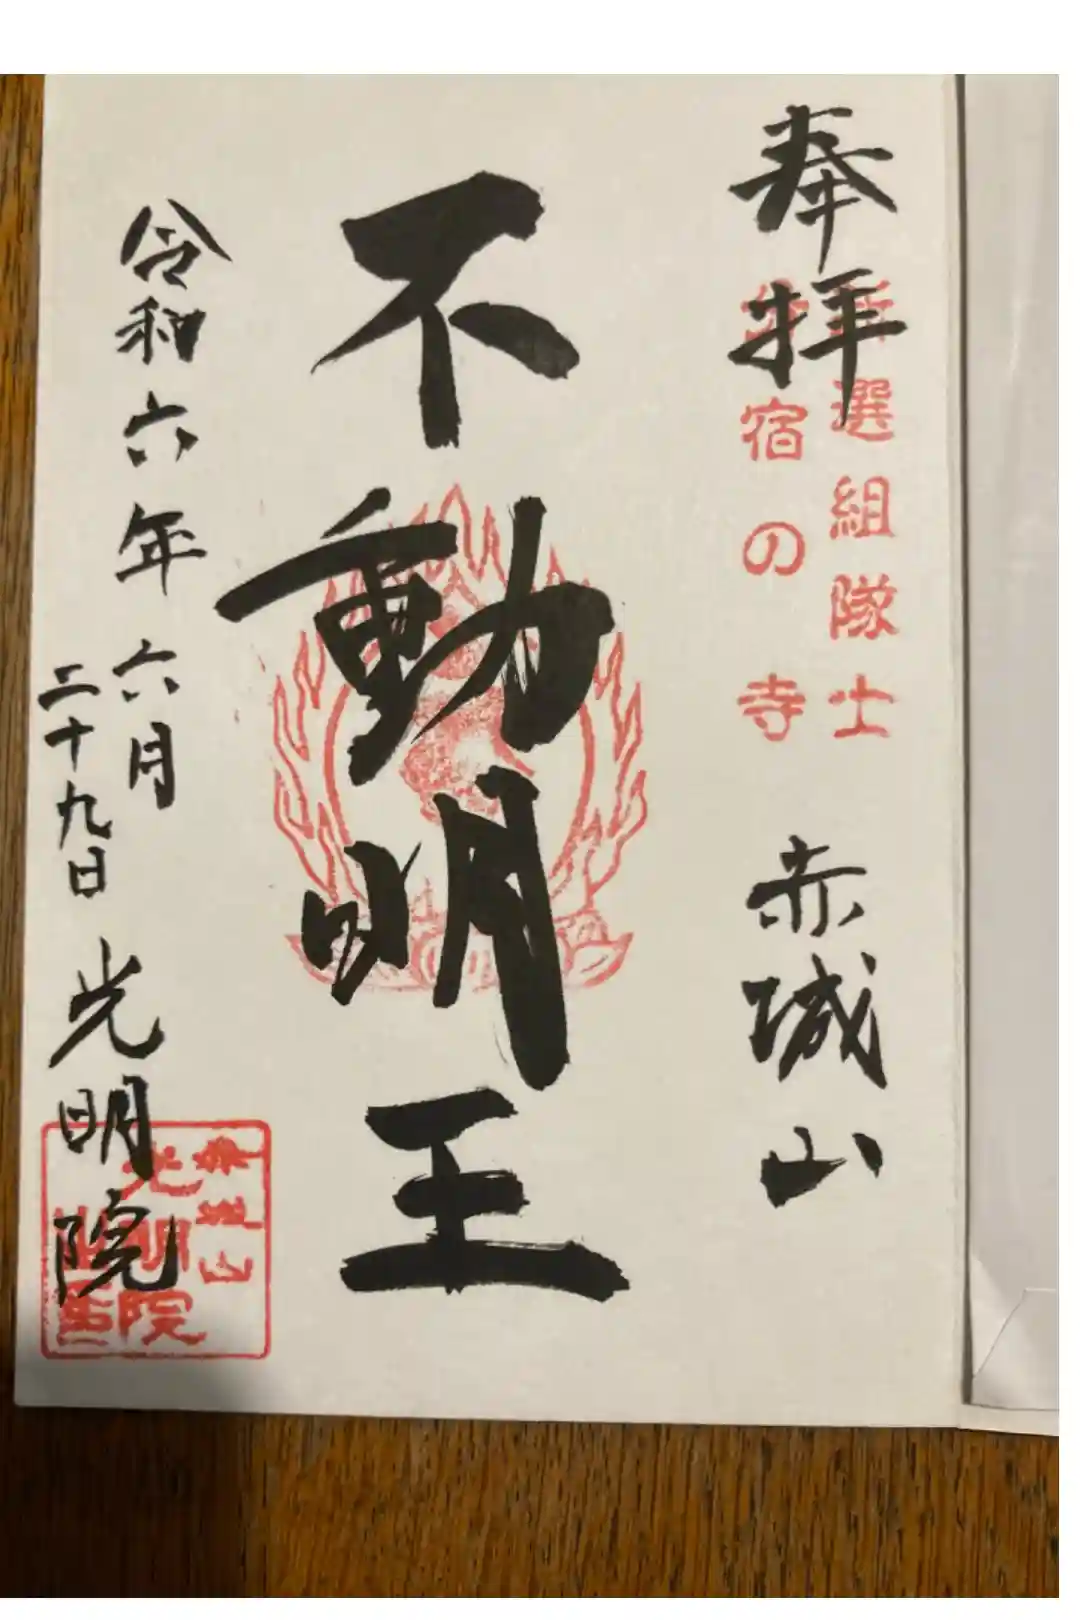 奉拝
選組隊士
宿の寺
赤城山
不動明王
令和六年六月
二十九日
光明院
光明院